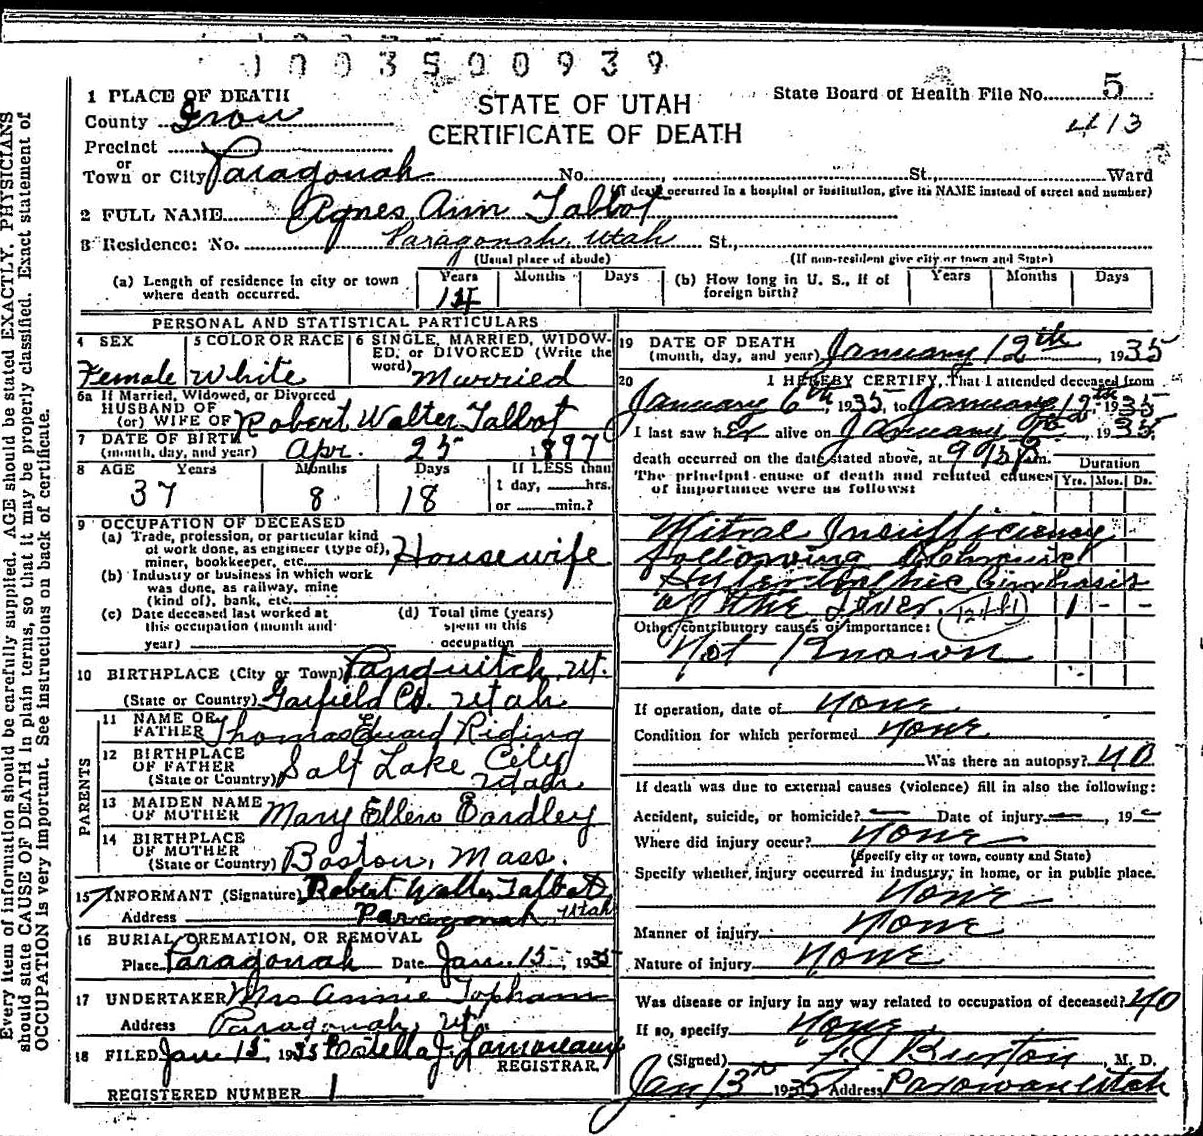 1003500939
STATE OF UTAH
CERTIFICATE OF DEATH
State Board of Health File No. 5
413
Every item of information should be carefully supplied. AGE should be stated EXACTLY. PHYSICIANS
should state CAUSE OF DEATH in plain terms, so that it may be properly classified. Exact statement of
OCCUPATION is very important. See instructions on back of certificate.
1 PLACE OF DEATH
County Iron
Precinct
or
Town or City Paragonah No. , St., Ward
(If death occurred in a hospital or institution, give its NAME instead of street and number)
2 FULL NAME Agnes Ann Talbot
3 Residence: No. Paragonah, Utah St.,
(Usual place of abode) (If non-resident give city or town and State)
(a) Length of residence in city or town where death occurred. Years 14 Months Days
(b) How long in U. S., if of foreign birth? Years Months Days
PERSONAL AND STATISTICAL PARTICULARS
4 SEX Female
5 COLOR OR RACE White
6 SINGLE, MARRIED, WIDOWED, or DIVORCED (Write the word) Married
6a If Married, Widowed, or Divorced
HUSBAND OF
(or) WIFE OF Robert Walter Talbot
7 DATE OF BIRTH
(month, day, and year) Apr. 25 1897
8 AGE Years 37 Months 8 Days 18 If LESS than 1 day, hrs. or min.?
9 OCCUPATION OF DECEASED
(a) Trade, profession, or particular kind of work done, as engineer (type of), miner, bookkeeper, etc. Housewife
(b) Industry or business in which work was done, as railway, mine (kind of), bank, etc.
(c) Date deceased last worked at this occupation (month and year)
(d) Total time (years) spent in this occupation
10 BIRTHPLACE (City or Town) Panguitch, Ut.
(State or Country) Garfield Co. Utah
PARENTS
11 NAME OF FATHER Thomas Edward Riding
12 BIRTHPLACE OF FATHER
(State or Country) Salt Lake City Utah
13 MAIDEN NAME OF MOTHER Mary Ellen Eardley
14 BIRTHPLACE OF MOTHER
(State or Country) Boston, Mass.
15 INFORMANT (Signature) Robert Walter Talbot
Address Paragonah, Utah
16 BURIAL, CREMATION, OR REMOVAL
Place Paragonah Date Jan. 15, 1935
17 UNDERTAKER Mrs Annie Topham
Address Paragonah, Ut.
18 FILED Jan 15, 1935 Estella J. Lamoreaux
REGISTRAR.
REGISTERED NUMBER 1
19 DATE OF DEATH
(month, day, and year) January 12th, 1935
20 I HEREBY CERTIFY, That I attended deceased from
January 6th, 1935, to January 12th, 1935
I last saw her alive on January, 1935.
death occurred on the date stated above, at m.
The principal cause of death and related causes of importance were as follows: Duration
Yrs. Mos. Ds.
Mitral Insufficiency
following Chronic
Hypertrophic Cirrhosis
of the Liver. 1 - -
Other contributory causes of importance:
Not Known
If operation, date of None
Condition for which performed None
Was there an autopsy? No
If death was due to external causes (violence) fill in also the following:
Accident, suicide, or homicide? — Date of injury —, 19 —
Where did injury occur? None
(Specify city or town, county and State)
Specify whether injury occurred in industry, in home, or in public place.
None
Manner of injury None
Nature of injury None
Was disease or injury in any way related to occupation of deceased? No
If so, specify None
(Signed) Burton, M. D.
Jan 13 1935 Address Parowan Utah